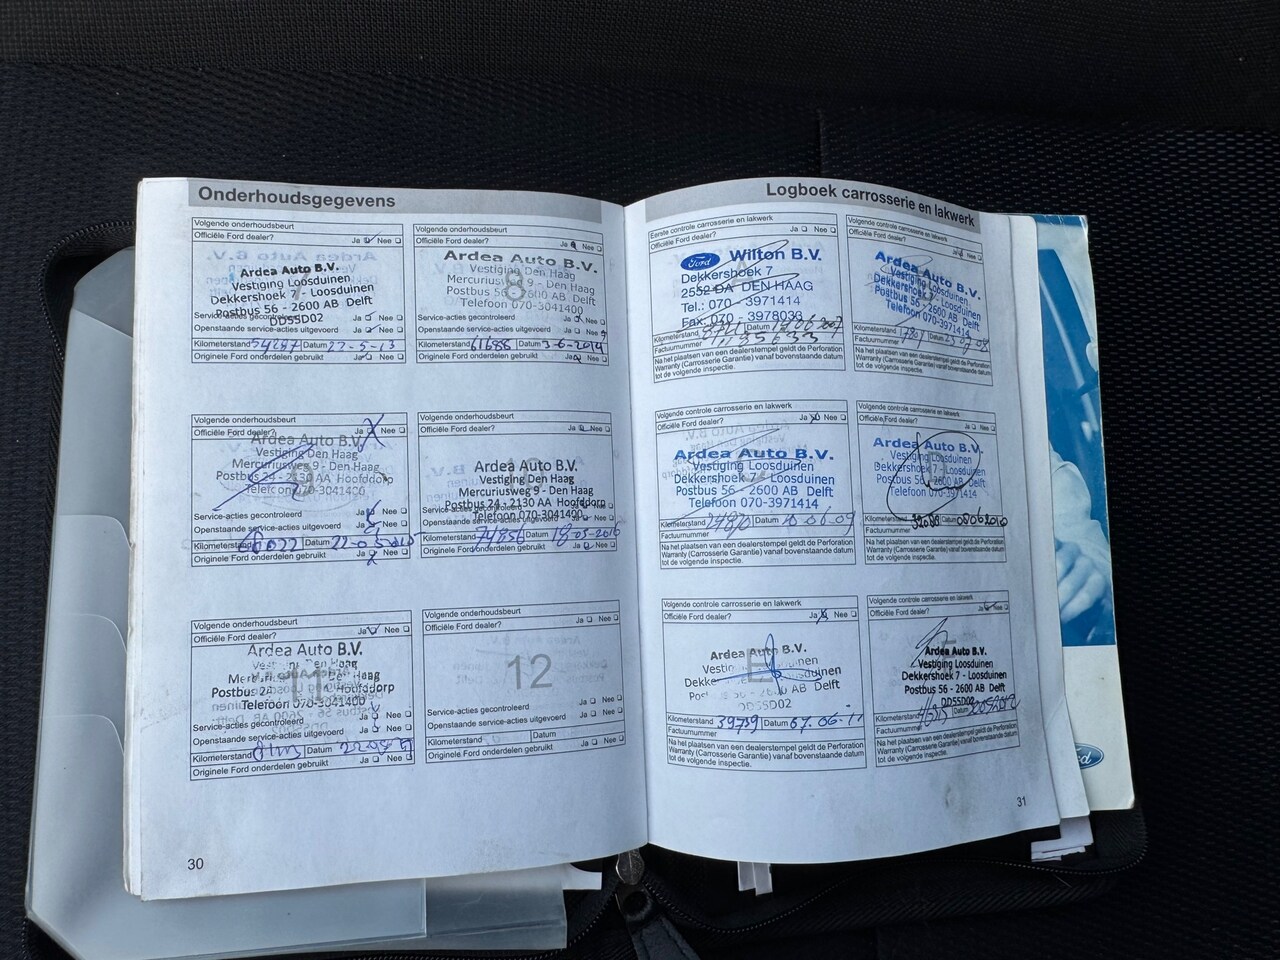 Onderhoudsgegevens
Volgende onderhoudsbeurt
Officiële Ford dealer? Ja Nee
Ardea Auto B.V.
Vestiging Loosduinen
Dekkershoek 7 - Loosduinen
Postbus 56 - 2600 AB Delft
DD55D02
Service-acties gecontroleerd Ja Nee
Openstaande service-acties uitgevoerd Ja Nee
Kilometerstand 54287 Datum 27-5-13
Originele Ford onderdelen gebruikt Ja Nee
Volgende onderhoudsbeurt
Officiële Ford dealer? Ja Nee
8
Ardea Auto B.V.
Vestiging Den Haag
Mercuriusweg 9 - Den Haag
Postbus 56 - 2600 AB Delft
Telefoon 070-3041400
Service-acties gecontroleerd Ja Nee
Openstaande service-acties uitgevoerd Ja Nee
Kilometerstand 61686 Datum 3-6-2014
Originele Ford onderdelen gebruikt Ja Nee
Volgende onderhoudsbeurt
Officiële Ford dealer? Ja Nee
9
Ardea Auto B.V.
Vestiging Den Haag
Mercuriusweg 9 - Den Haag
Postbus 24 - 2130 AA Hoofddorp
Telefoon 070-3041400
Service-acties gecontroleerd Ja Nee
Openstaande service-acties uitgevoerd Ja Nee
Kilometerstand Datum
Originele Ford onderdelen gebruikt Ja Nee
Volgende onderhoudsbeurt
Officiële Ford dealer? Ja Nee
Ardea Auto B.V.
Vestiging Den Haag
Mercuriusweg 9 - Den Haag
Postbus 24 - 2130 AA Hoofddorp
Telefoon 070-3041400
Service-acties gecontroleerd Ja Nee
Openstaande service-acties uitgevoerd Ja Nee
Kilometerstand 74856 Datum 18-05-2016
Originele Ford onderdelen gebruikt Ja Nee
Volgende onderhoudsbeurt
Officiële Ford dealer? Ja Nee
11
Ardea Auto B.V.
Vestiging Den Haag
Postbus 24 Hoofddorp
Telefoon 070-3041400
Service-acties gecontroleerd Ja Nee
Openstaande service-acties uitgevoerd Ja Nee
Kilometerstand Datum
Originele Ford onderdelen gebruikt Ja Nee
Volgende onderhoudsbeurt
Officiële Ford dealer? Ja Nee
12
Service-acties gecontroleerd Ja Nee
Openstaande service-acties uitgevoerd Ja Nee
Kilometerstand Datum
Originele Ford onderdelen gebruikt Ja Nee
30
Logboek carrosserie en lakwerk
Eerste controle carrosserie en lakwerk
Officiële Ford dealer? Ja Nee
Ford Wilton B.V.
Dekkershoek 7
2552 DA DEN HAAG
Tel.: 070 - 3971414
Fax: 070 - 3978033
Kilometerstand Datum
Factuurnummer
Na het plaatsen van een dealerstempel geldt de Perforation
Warranty (Carrosserie Garantie) vanaf bovenstaande datum
tot de volgende inspectie.
Volgende controle carrosserie en lakwerk
Officiële Ford dealer? Ja Nee
Ardea Auto B.V.
Vestiging Loosduinen
Dekkershoek 7 - Loosduinen
Postbus 56 - 2600 AB Delft
Telefoon 070-3971414
Kilometerstand Datum
Factuurnummer
Na het plaatsen van een dealerstempel geldt de Perforation
Warranty (Carrosserie Garantie) vanaf bovenstaande datum
tot de volgende inspectie.
Volgende controle carrosserie en lakwerk
Officiële Ford dealer? Ja Nee
C
Ardea Auto B.V.
Vestiging Loosduinen
Dekkershoek 7 - Loosduinen
Postbus 56 - 2600 AB Delft
Telefoon 070-3971414
Kilometerstand Datum
Factuurnummer
Na het plaatsen van een dealerstempel geldt de Perforation
Warranty (Carrosserie Garantie) vanaf bovenstaande datum
tot de volgende inspectie.
Volgende controle carrosserie en lakwerk
Officiële Ford dealer? Ja Nee
D
Ardea Auto B.V.
Vestiging Loosduinen
Dekkershoek 7 - Loosduinen
Postbus 56 - 2600 AB Delft
Telefoon 070-3971414
Kilometerstand Datum 08062010
Factuurnummer
Na het plaatsen van een dealerstempel geldt de Perforation
Warranty (Carrosserie Garantie) vanaf bovenstaande datum
tot de volgende inspectie.
Volgende controle carrosserie en lakwerk
Officiële Ford dealer? Ja Nee
E
Ardea Auto B.V.
Kilometerstand 39739 Datum 07-06-11
Factuurnummer
Na het plaatsen van een dealerstempel geldt de Perforation
Warranty (Carrosserie Garantie) vanaf bovenstaande datum
tot de volgende inspectie.
Volgende controle carrosserie en lakwerk
Officiële Ford dealer? Ja Nee
Ardea Auto B.V.
Vestiging Loosduinen
Dekkershoek 7 - Loosduinen
Postbus 56 - 2600 AB Delft
DD55D02
Kilometerstand Datum
Factuurnummer
Na het plaatsen van een dealerstempel geldt de Perforation
Warranty (Carrosserie Garantie) vanaf bovenstaande datum
tot de volgende inspectie.
31